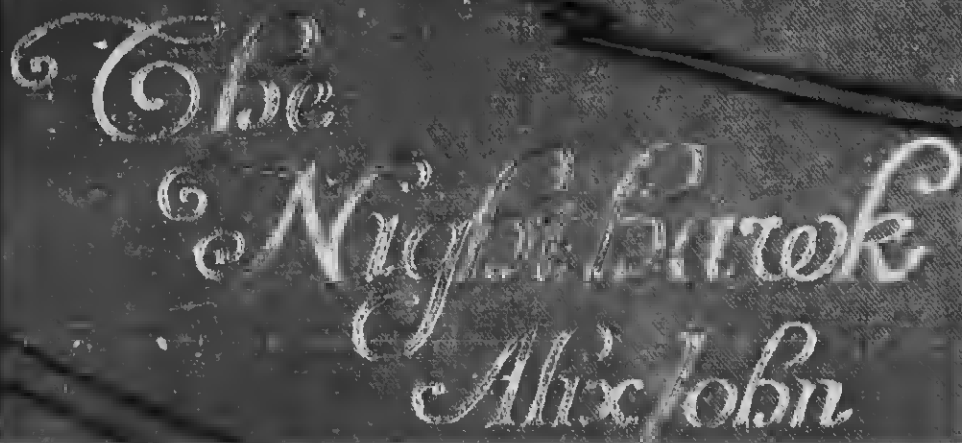 The
Nighthawk
Alix John